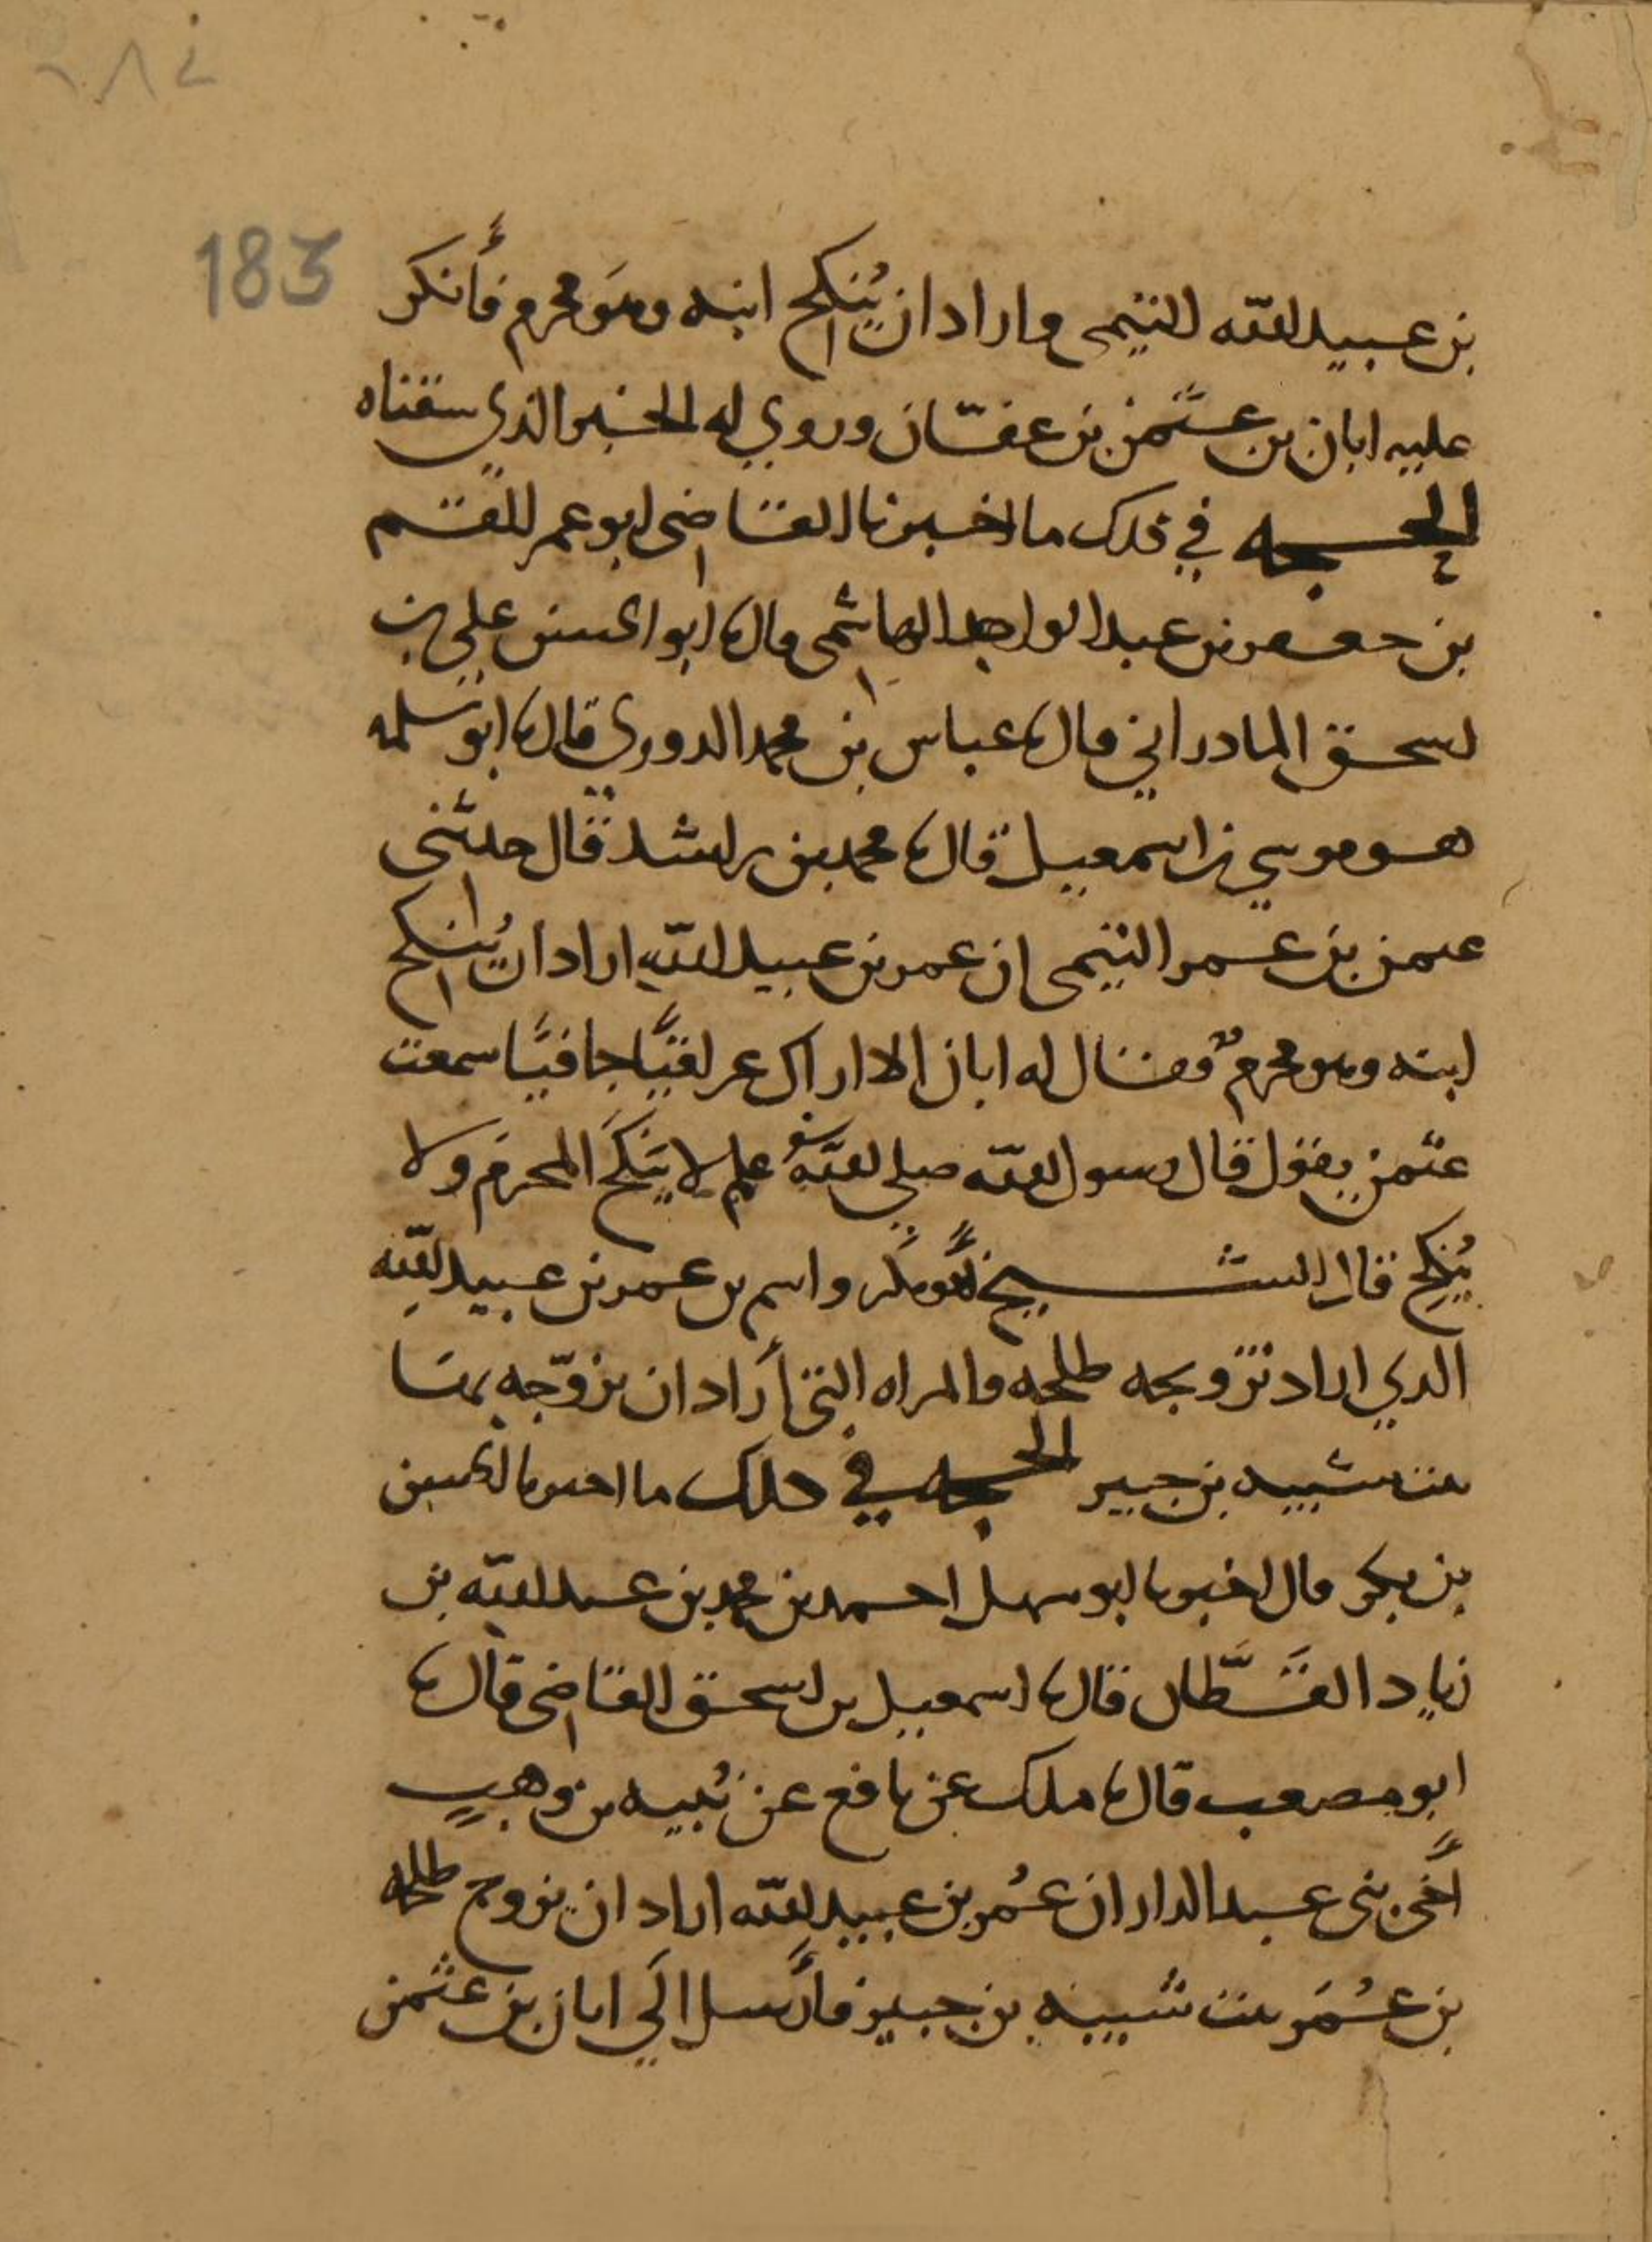 ٢٨٤
183
بن عبيد الله التيمى واراد ان يُنكح ابنه وهو محرم فأنكر
عليه ابان بن عثمن بن عفان وروي له الخبر الذي سقناه
الحجه في ذلك ما اخبرنا القاضى ابو عمر القسم
بن جعفر بن عبد الواحد الهاشمى قال ثنا ابو الحسن على بن
اسحق المادراني قال ثنا عباس بن محمد الدوري قال ثنا ابو سلمه
هو موسي بن اسمعيل قال ثنا محمد بن راشد قال حدثنى
عثمن بن عمر التيمى ان عمر بن عبيد الله اراد ان يُنكح
ابنه وهو محرمٌ فقال له ابان الا اراك عراقيًّا جافيًا سمعت
عثمن يقول قال رسول الله صلى الله عليه وسلم لا يَنكح المحرم ولا
يُنكِح قال الشيخ ابو بكر واسم بن عمر بن عبيد الله
الذي اراد تزويجه طلحه والمراه التى أراد ان يزوّجه بها
بنت شيبه بن جبير الحجه في ذلك ما اخبرنا الحسن
بن بكر قال اخبرنا ابو سهل احمد بن محمد بن عبد الله بن
زياد القطّان قال ثنا اسمعيل بن اسحق القاضى قال ثنا
ابو مصعب قال ثنا ملك عن نافع عن نُبيه بن وهبٍ
أخى بنى عبد الدار ان عُمر بن عبيد الله اراد ان يزوج طلحه
بن عُمَر بنت شيبه بن جبير فأرسل الي ابان بن عثمن